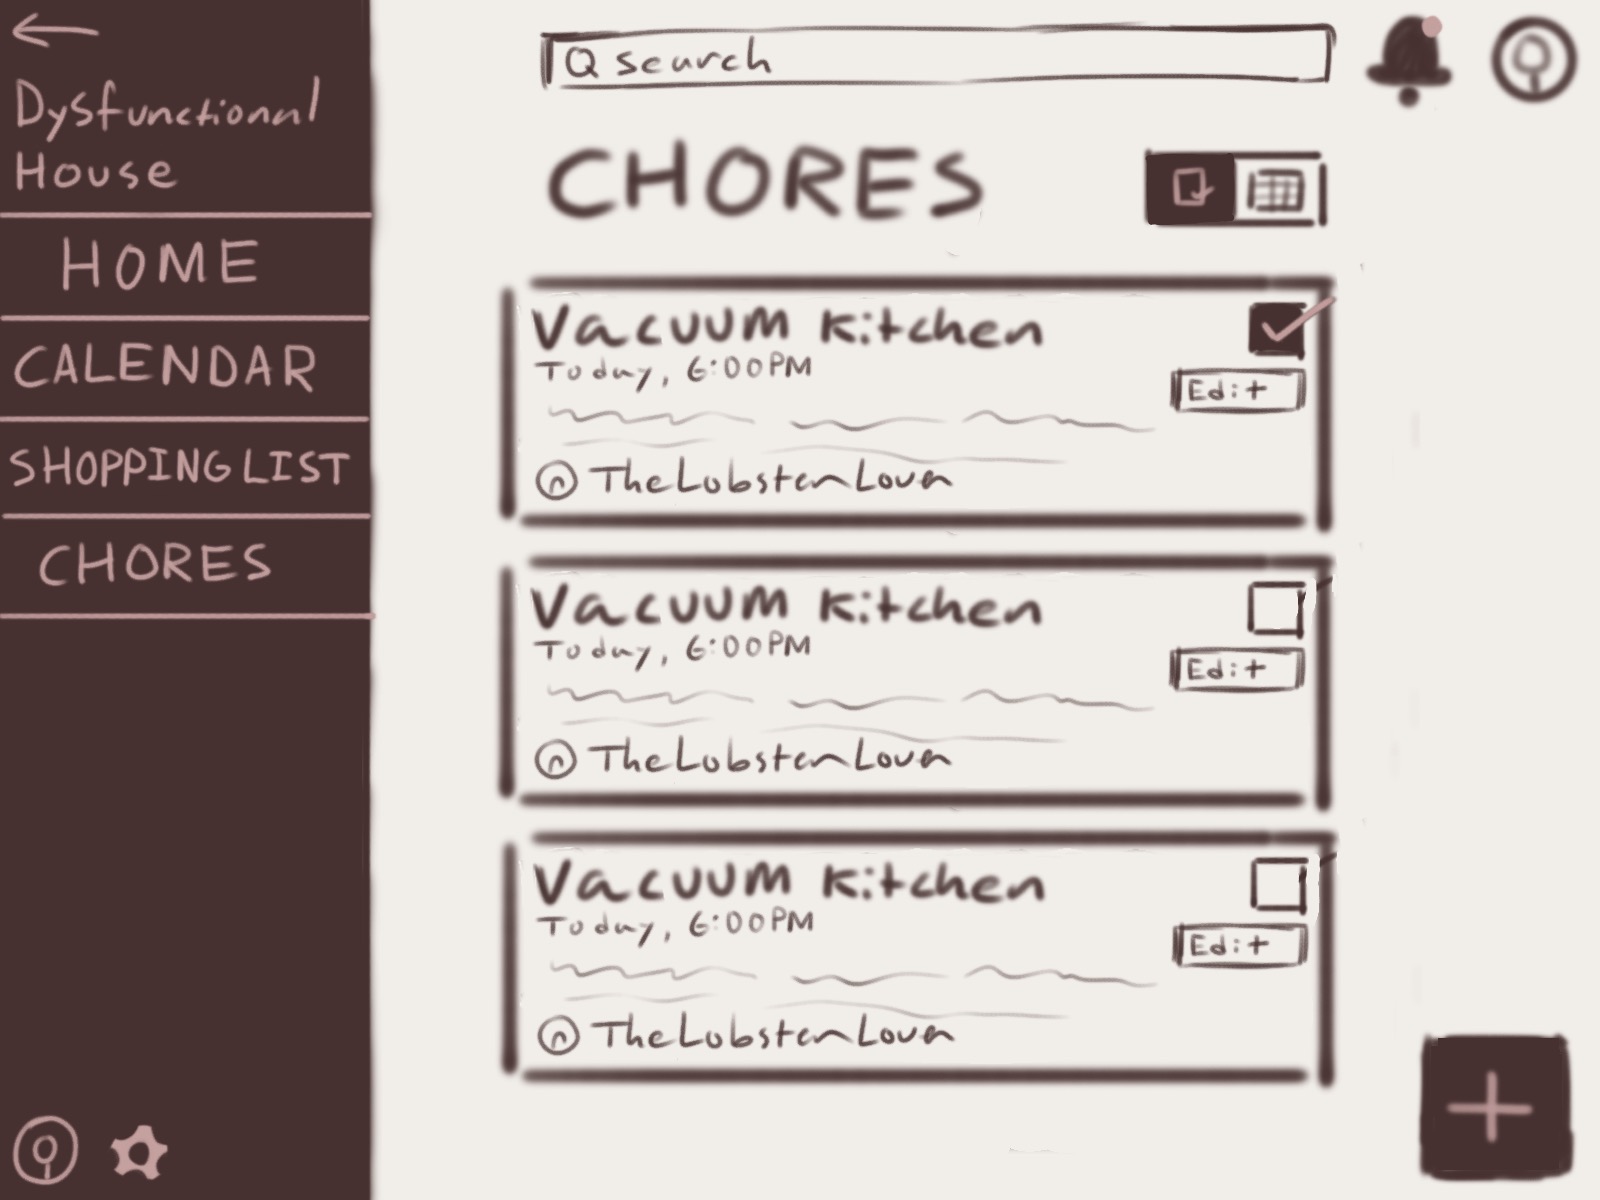 Dysfunctional
House
HOME
CALENDAR
SHOPPING LIST
CHORES
search
CHORES
Vacuum Kitchen
Today, 6:00PM
Edit
TheLobsterLover
Vacuum Kitchen
Today, 6:00PM
Edit
TheLobsterLover
Vacuum Kitchen
Today, 6:00PM
Edit
TheLobsterLover